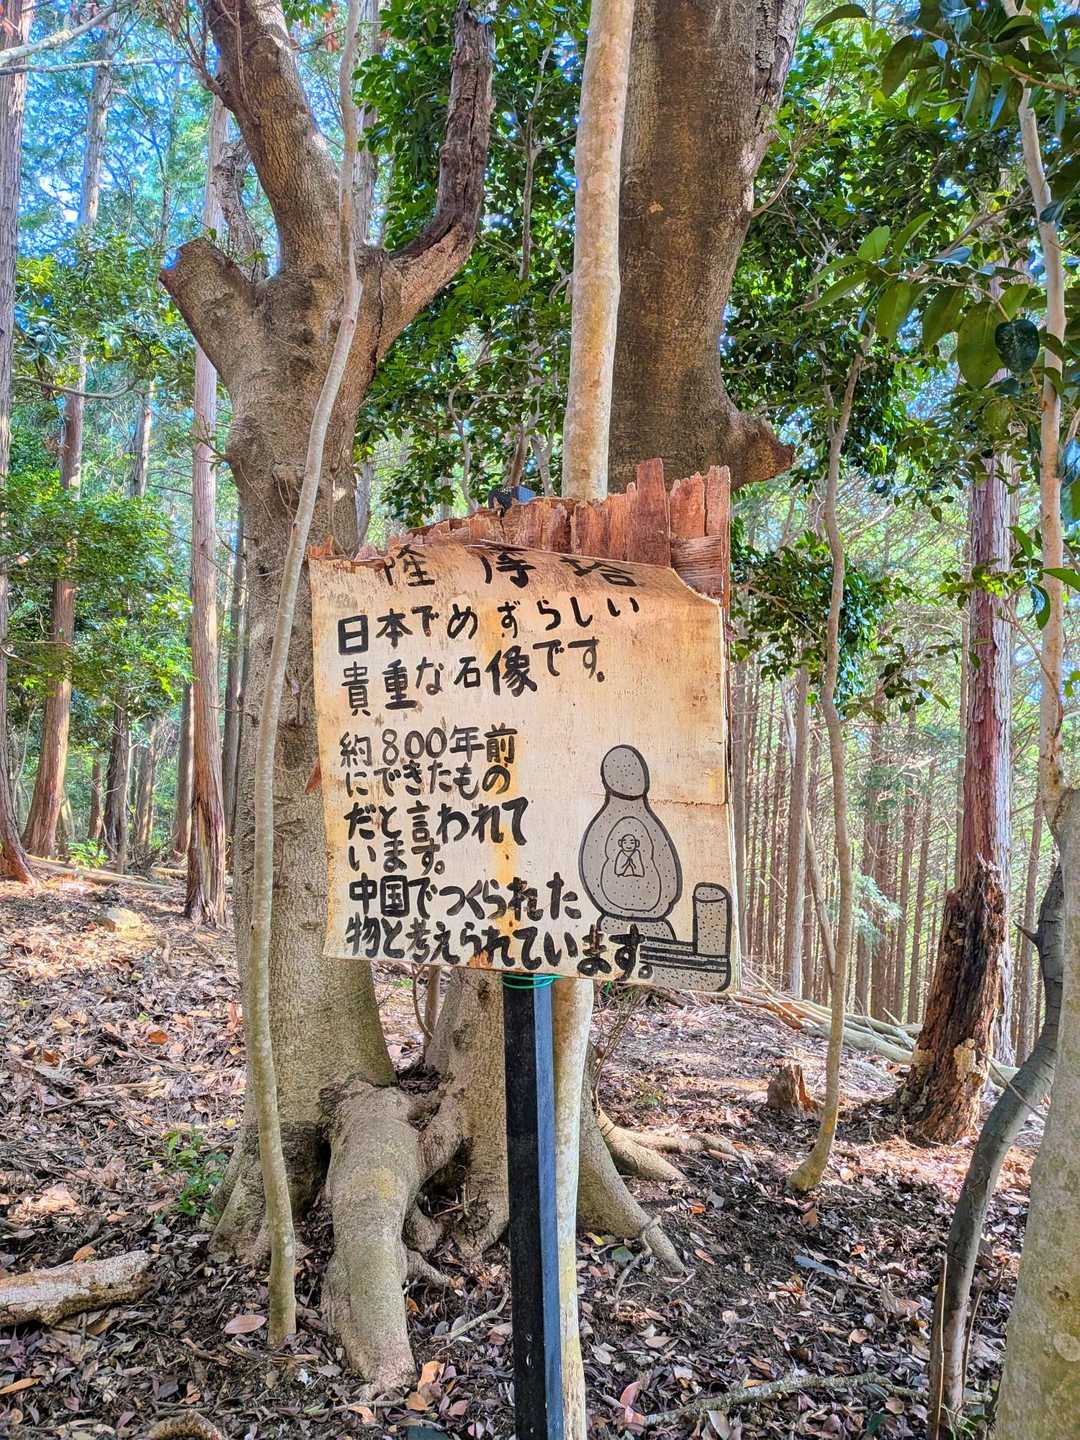 塔
日本でめずらしい
貴重な石像です。
約800年前
にできたもの
だと言われて
います。
中国でつくられた
物と考えられています。